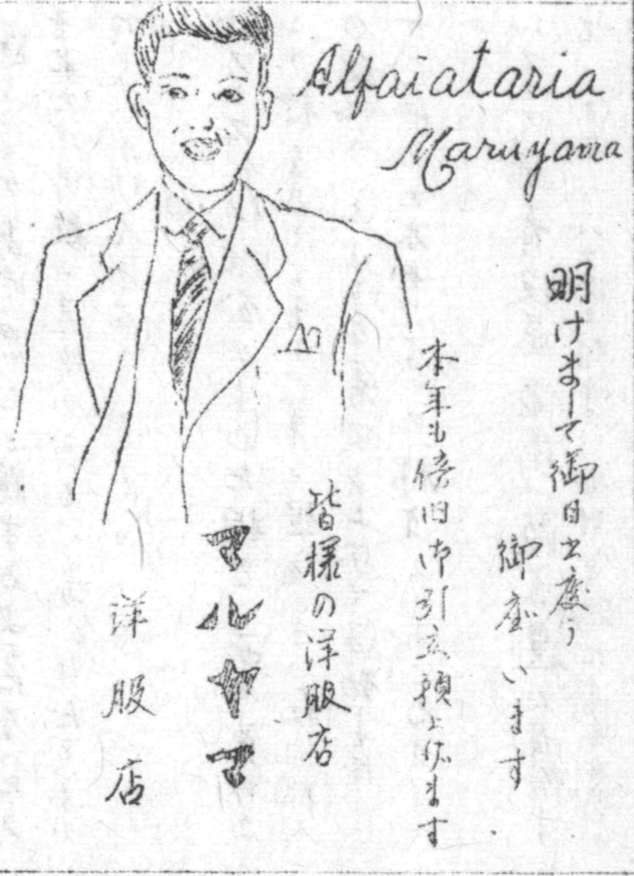 Alfaiataria
Maruyama
明けまして御目出度う
御座います
本年も倍旧御引立願上げます
皆様の洋服店
マルヤマ
洋服店